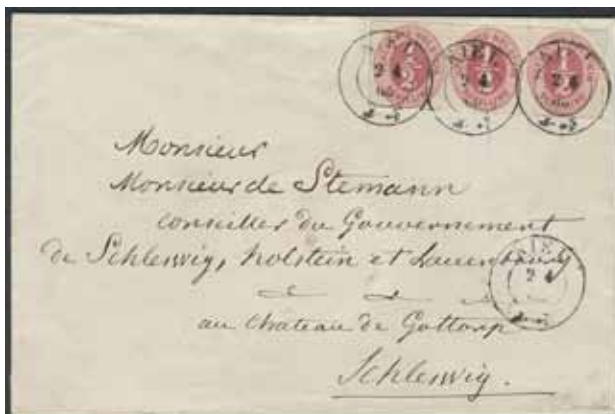 KIEL KIEL KIEL
2 4 2 4 2 4
1/2 1/2 1/2
Monsieur
Monsieur de Stemann
Conseiller du Gouvernement
de Schleswig, Holstein et Lauenbourg
au Château de Gottorp
Schleswig.
KIEL
2 4